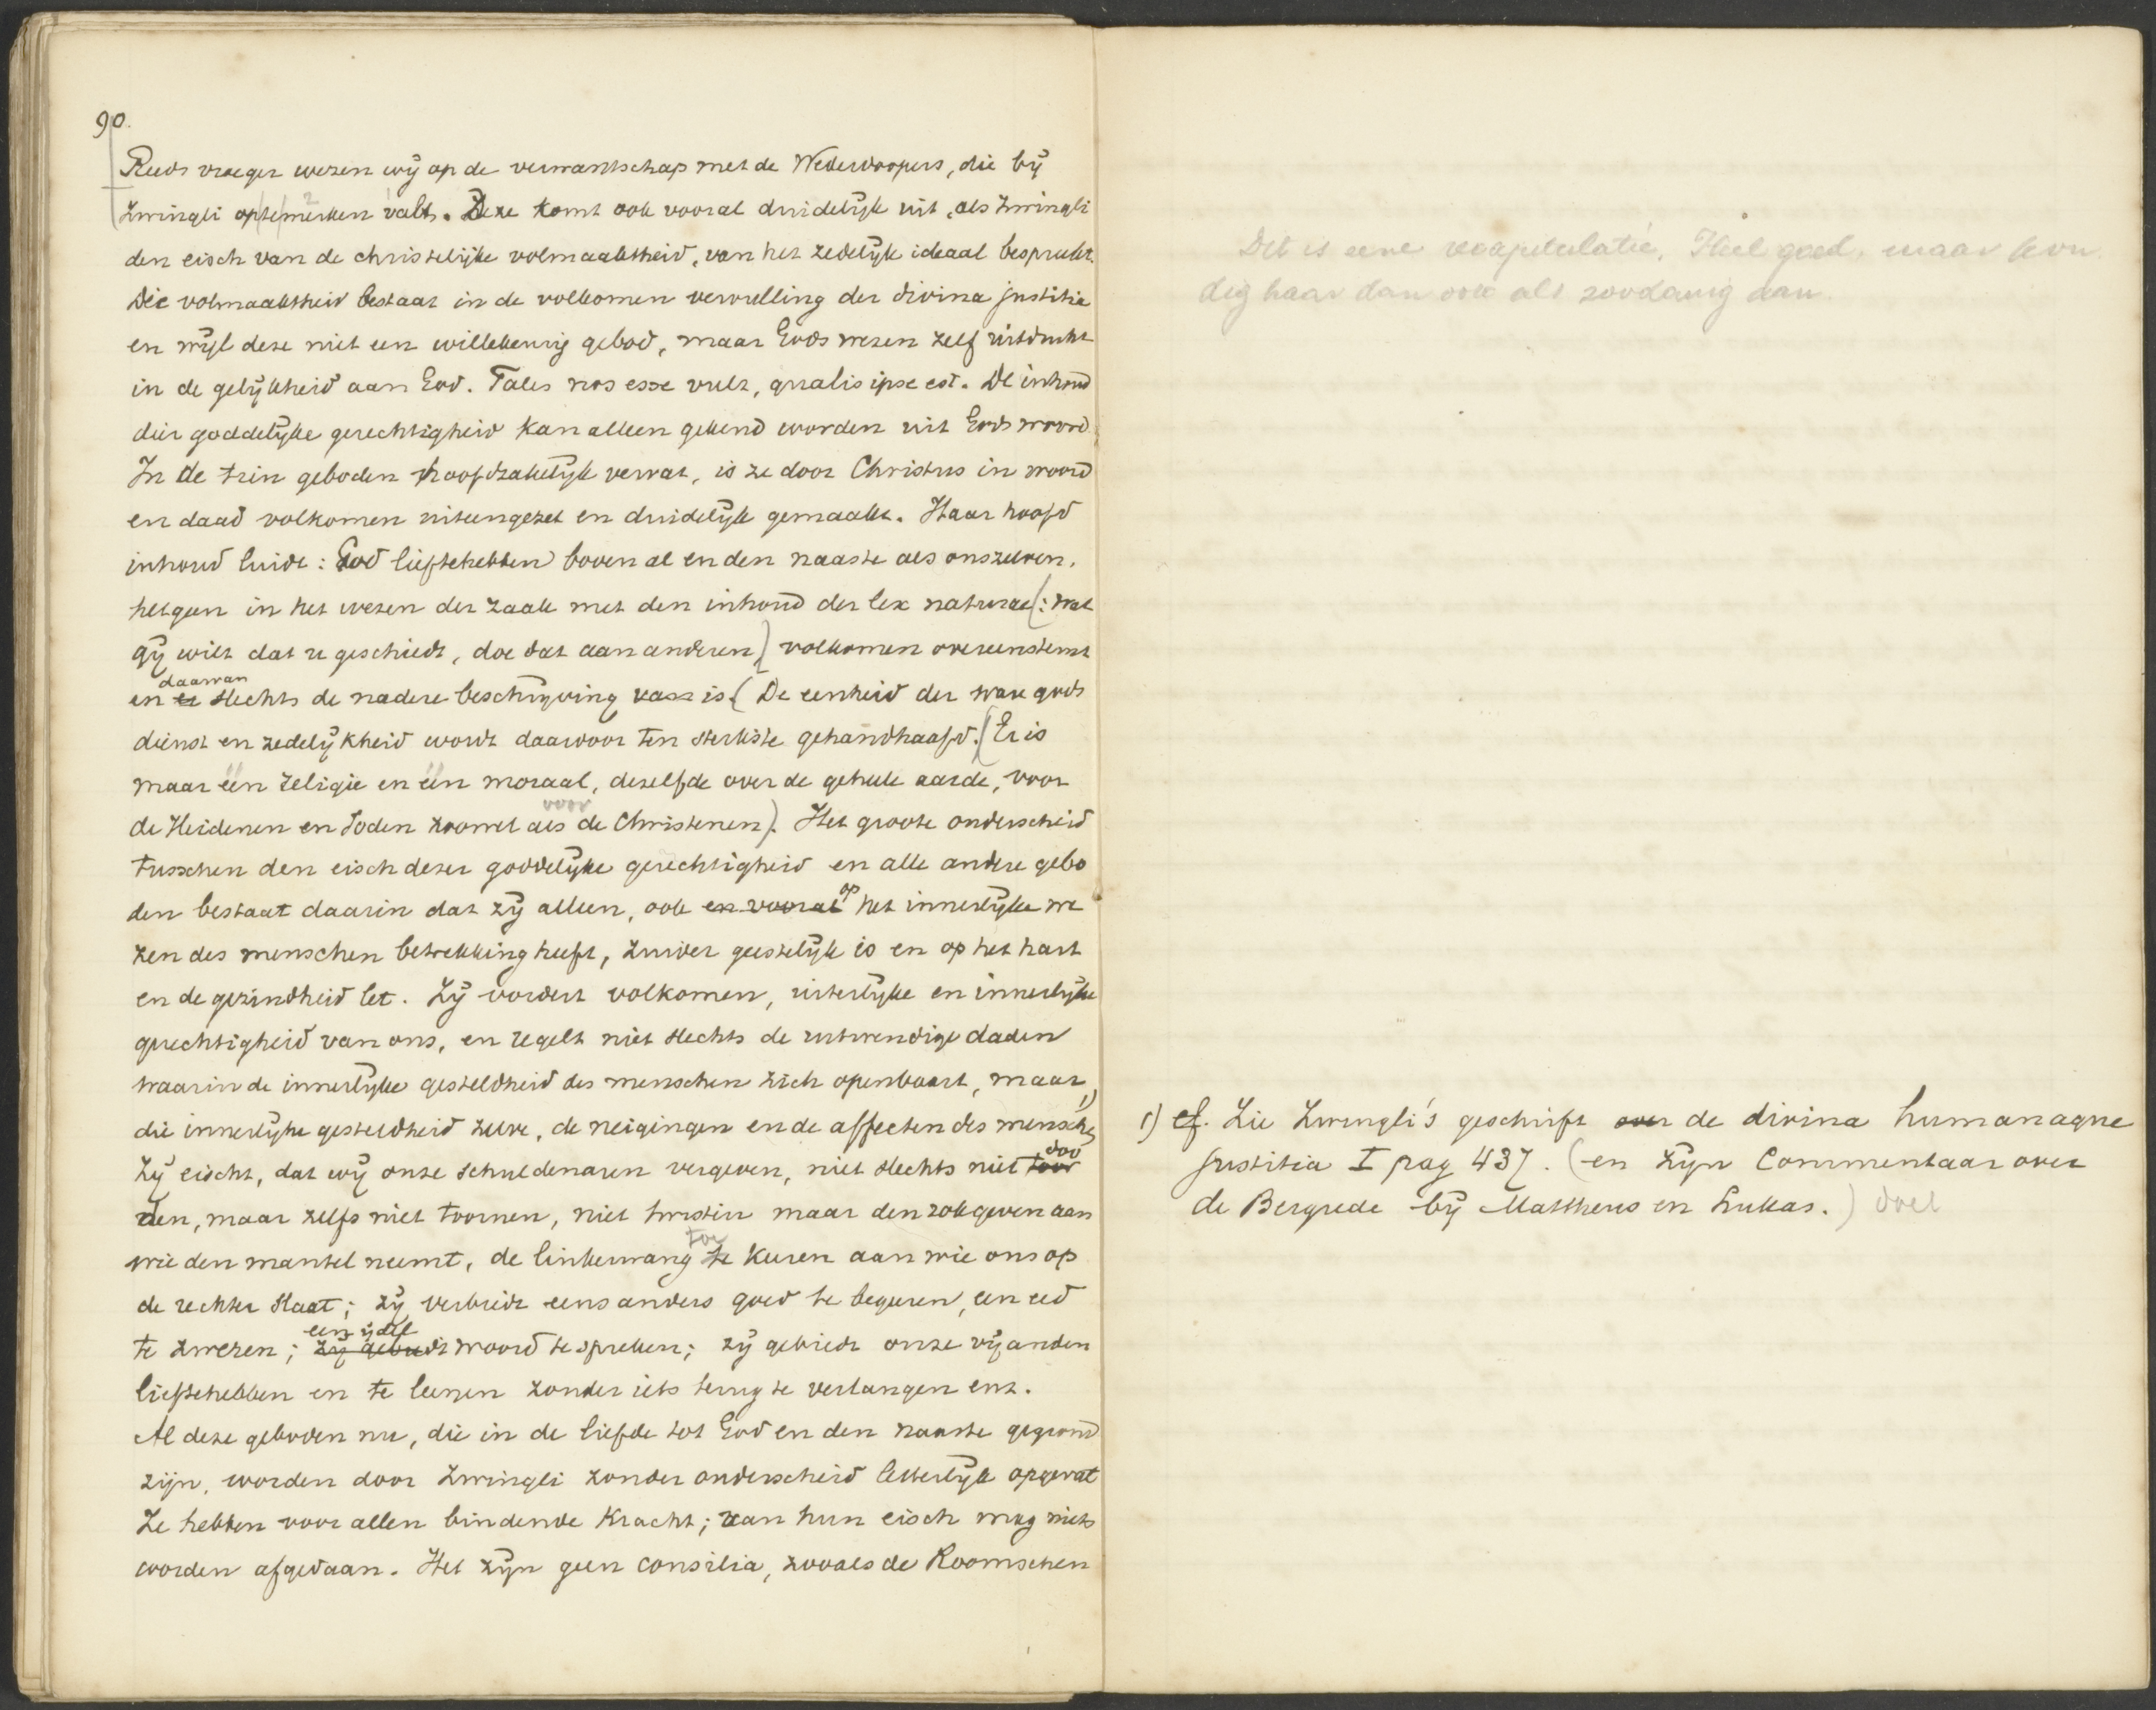 90.
Reeds vroeger wezen wij op de verwantschap met de Wederdoopers, die bij
Zwingli op te merken valt. Deze komt ook vooral duidelijk uit, als Zwingli
den eisch van de christelijke volmaaktheid, van het zedelijk ideaal bespreekt.
Die volmaaktheid bestaat in de volkomen vervulling der divina justitia
en wijl deze niet een willekeurig gebod, maar Gods wezen zelf uitdrukt
in de gelijkheid aan God. Tales nos esse vult, qualis ipse est. De inhoud
dier goddelijke gerechtigheid kan alleen gekend worden uit Gods woord.
In de tien geboden hoofdzakelijk vervat, is ze door Christus in woord
en daad volkomen uiteengezet en duidelijk gemaakt. Haar hoofd
inhoud luidt: God liefhebben boven al en den naaste als onszelven,
hetgeen in het wezen der zaak met den inhoud der lex naturae (: wat
gij wilt dat u geschiedt, doe dat aan anderen) volkomen overeenstemt
daarvan
en er slechts de nadere beschrijving van is. (De eenheid der ware gods
dienst en zedelijkheid wordt daardoor ten sterkste gehandhaafd. (Er is
maar één religie en één moraal, dezelfde over de geheele aarde, voor
voor
de Heidenen en Joden zoowel als de Christenen). Het groote onderscheid
tusschen den eisch dezer goddelijke gerechtigheid en alle andere gebo
op
den bestaat daarin dat zij alleen, ook en vooral het innerlijke we
zen des menschen betrekking heeft, zuiver geestelijk is en op het hart
en de gezindheid let. Zij vordert volkomen, uiterlijke en innerlijke
gerechtigheid van ons, en regelt niet slechts de uitwendige daden
waarin de innerlijke gesteldheid des menschen zich openbaart, maar
die innerlijke gesteldheid zelve, de neigingen en de affecten des menschen 1)
doo
Zij eischt, dat wij onze schuldenaren vergeven, niet slechts niet toor
den, maar zelfs niet toornen, niet twisten maar den rok geven aan
toe
wie den mantel neemt, de linkerwang te keeren aan wie ons op
de rechter slaat; zij verbiedt eens anders goed te begeeren, een eed
een ijdel
te zweren; zij gebiedt woord te spreken; zij gebiedt onze vijanden
liefhebben en te leenen zonder iets terug te verlangen enz.
Al deze geboden nu, die in de liefde tot God en den naaste gegrond
zijn, worden door Zwingli zonder onderscheid letterlijk opgevat
Ze hebben voor allen bindende kracht; van hun eisch mag niets
worden afgedaan. Het zijn geen consilia, zooals de Roomschen
Dit is eene recapitulatie. Heel goed, maar kon
dig haar dan ook als zoodanig aan.
1) cf. Zie Zwingli's geschrift over de divina humanaque
justitia I pag 437. (en zijn Commentaar over
de Bergrede bij Mattheus en Lukas.) deel